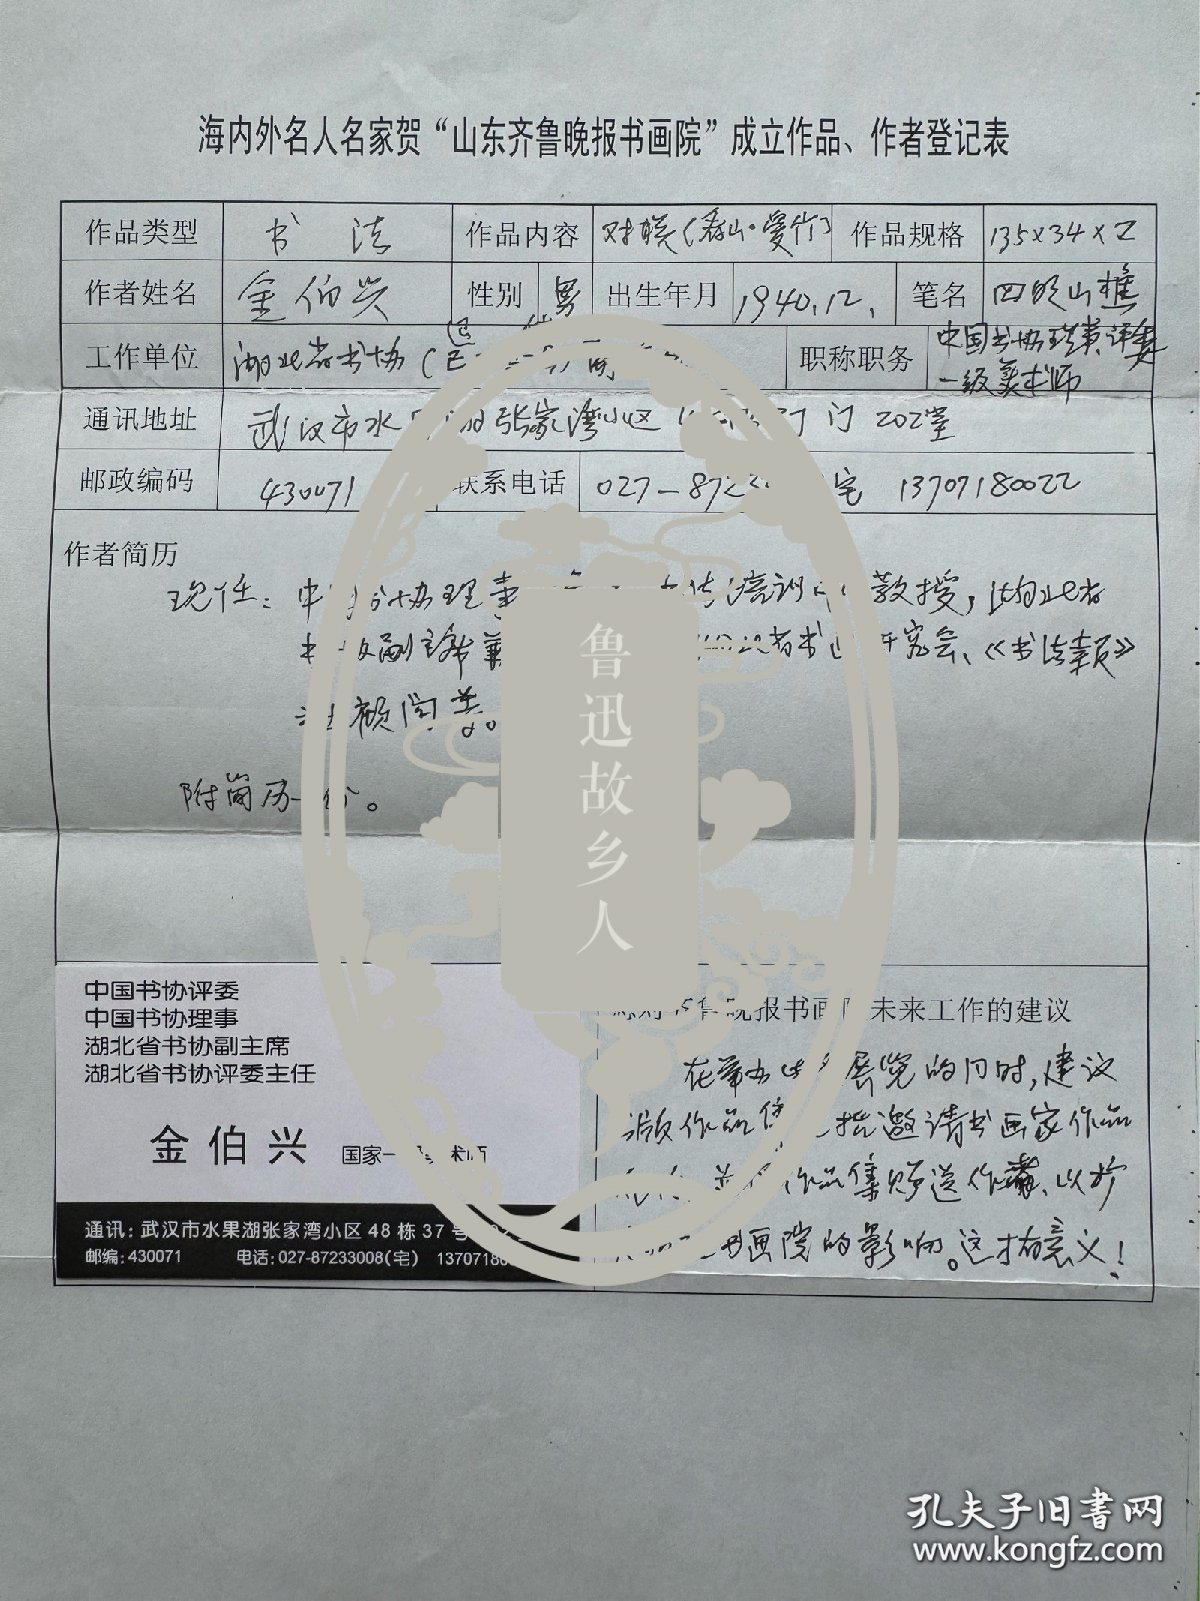 海内外名人名家贺“山东齐鲁晚报书画院”成立作品、作者登记表
作品类型 书法 作品内容 对联(看山·爱竹) 作品规格 135×34×2
作者姓名 金伯兴 性别 男 出生年月 1940.12. 笔名 四明山樵
工作单位 湖北省书协( 职称职务 中国书协理事、评委
一级美术师
通讯地址 武汉市水 张家湾小区 门 202室
邮政编码 430071 联系电话 027-872 宅 13707180022
作者简历
现任: 中 书协理事 培训 教授, 湖北省
副主席兼 省书 研究会、《书法报》
顾问等。
附简历一份。
中国书协评委
中国书协理事
湖北省书协副主席
湖北省书协评委主任
金伯兴 国家一 术师
通讯: 武汉市水果湖张家湾小区 48 栋 37 号
邮编: 430071 电话: 027-87233008(宅) 1370718
鲁晚报书画 未来工作的建议
在举办 展览的同时,建议
版作品集 邀请书画家作品
作品集赠送作者、以扩
书画院的影响。这才有意义!
鲁迅故乡人
孔夫子旧书网
www.kongfz.com